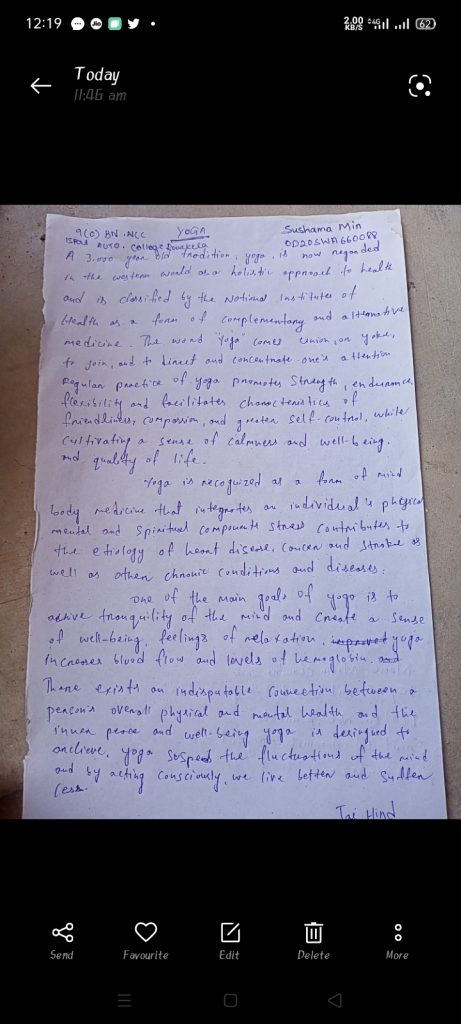 12:19
2.00 KB/S 4G 62
Today
11:46 am
9(O) BN .NCC YOGA Sushama Min
Ispat AUTO. College Rourkela OD20SWA660088
A 3,000 year old tradition, yoga, is now regarded
in the western world as a holistic approach to health
and is classified by the National Institutes of
Health as a form of complementary and alternative
medicine. The word "Yoga" comes union, on yoke,
to join, and to direct and concentrate one's attention
Regular practice of yoga promotes strength, endurance,
flexibility and facilitates characteristics of
friendliness, compassion, and greater self-control, while
cultivating a sense of calmness and well-being.
and quality of life.
Yoga is recognized as a form of mind
body medicine that integrates an individual's physical
mental and spiritual components stress contributes to
the etiology of heart disease, cancer and stroke as
well as other chronic conditions and diseases.
One of the main goals of yoga is to
achive tranquility of the mind and create a sense
of well-being, feelings of relaxation, improved yoga
increases blood flow and levels of hemoglobin. and
There exists an indisputable connection between a
person's overall physical and mental health and the
inner peace and well-being yoga is designed to
achieve. yoga suspeds the fluctuations of the mind
and by acting consciously, we live better and suffer
less.
Jai Hind
Send
Favourite
Edit
Delete
More